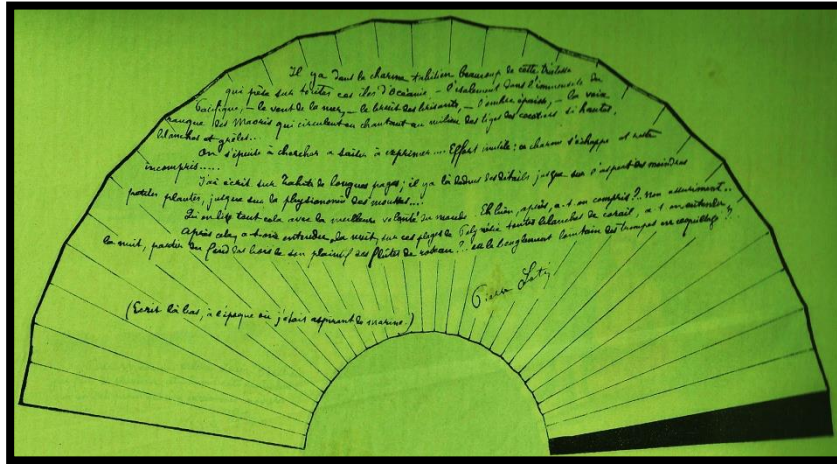 Il y a dans le charme tahitien beaucoup de cette tristesse
qui pèse sur toutes ces îles d'Océanie – l'isolement dans l'immensité du
Pacifique, – le vent de la mer, – le bruit des brisants, – l'ombre épaisse, – la voix
rauque des Maoris qui circulent en chantant au milieu des tiges des cocotiers si hautes,
blanches et grêles...
On s'épuite à chercher à saisir à exprimer.... Effort inutile : ce charme s'échappe et reste
incompris.....
J'ai écrit sur Tahiti de longues pages ; il y a là dedans des détails jusque sur l'aspect des moindres
petites plantes, jusque sur la physionomie des mousses....
Qu'on lise tout cela avec la meilleure volonté du monde. Eh bien, après, a-t-on compris ?. Non assurément..
Après cela, a-t-on entendu, la nuit, sur ces plages de Polynésie toutes blanches de corail, a-t-on entendu,
la nuit, partir du fond des bois le son plaintif des flûtes de roseau ?. ou le beuglement lointain des trompes en coquillage ?
Pierre Loti
(Ecrit là bas, à l'époque où j'étais aspirant de marine.)